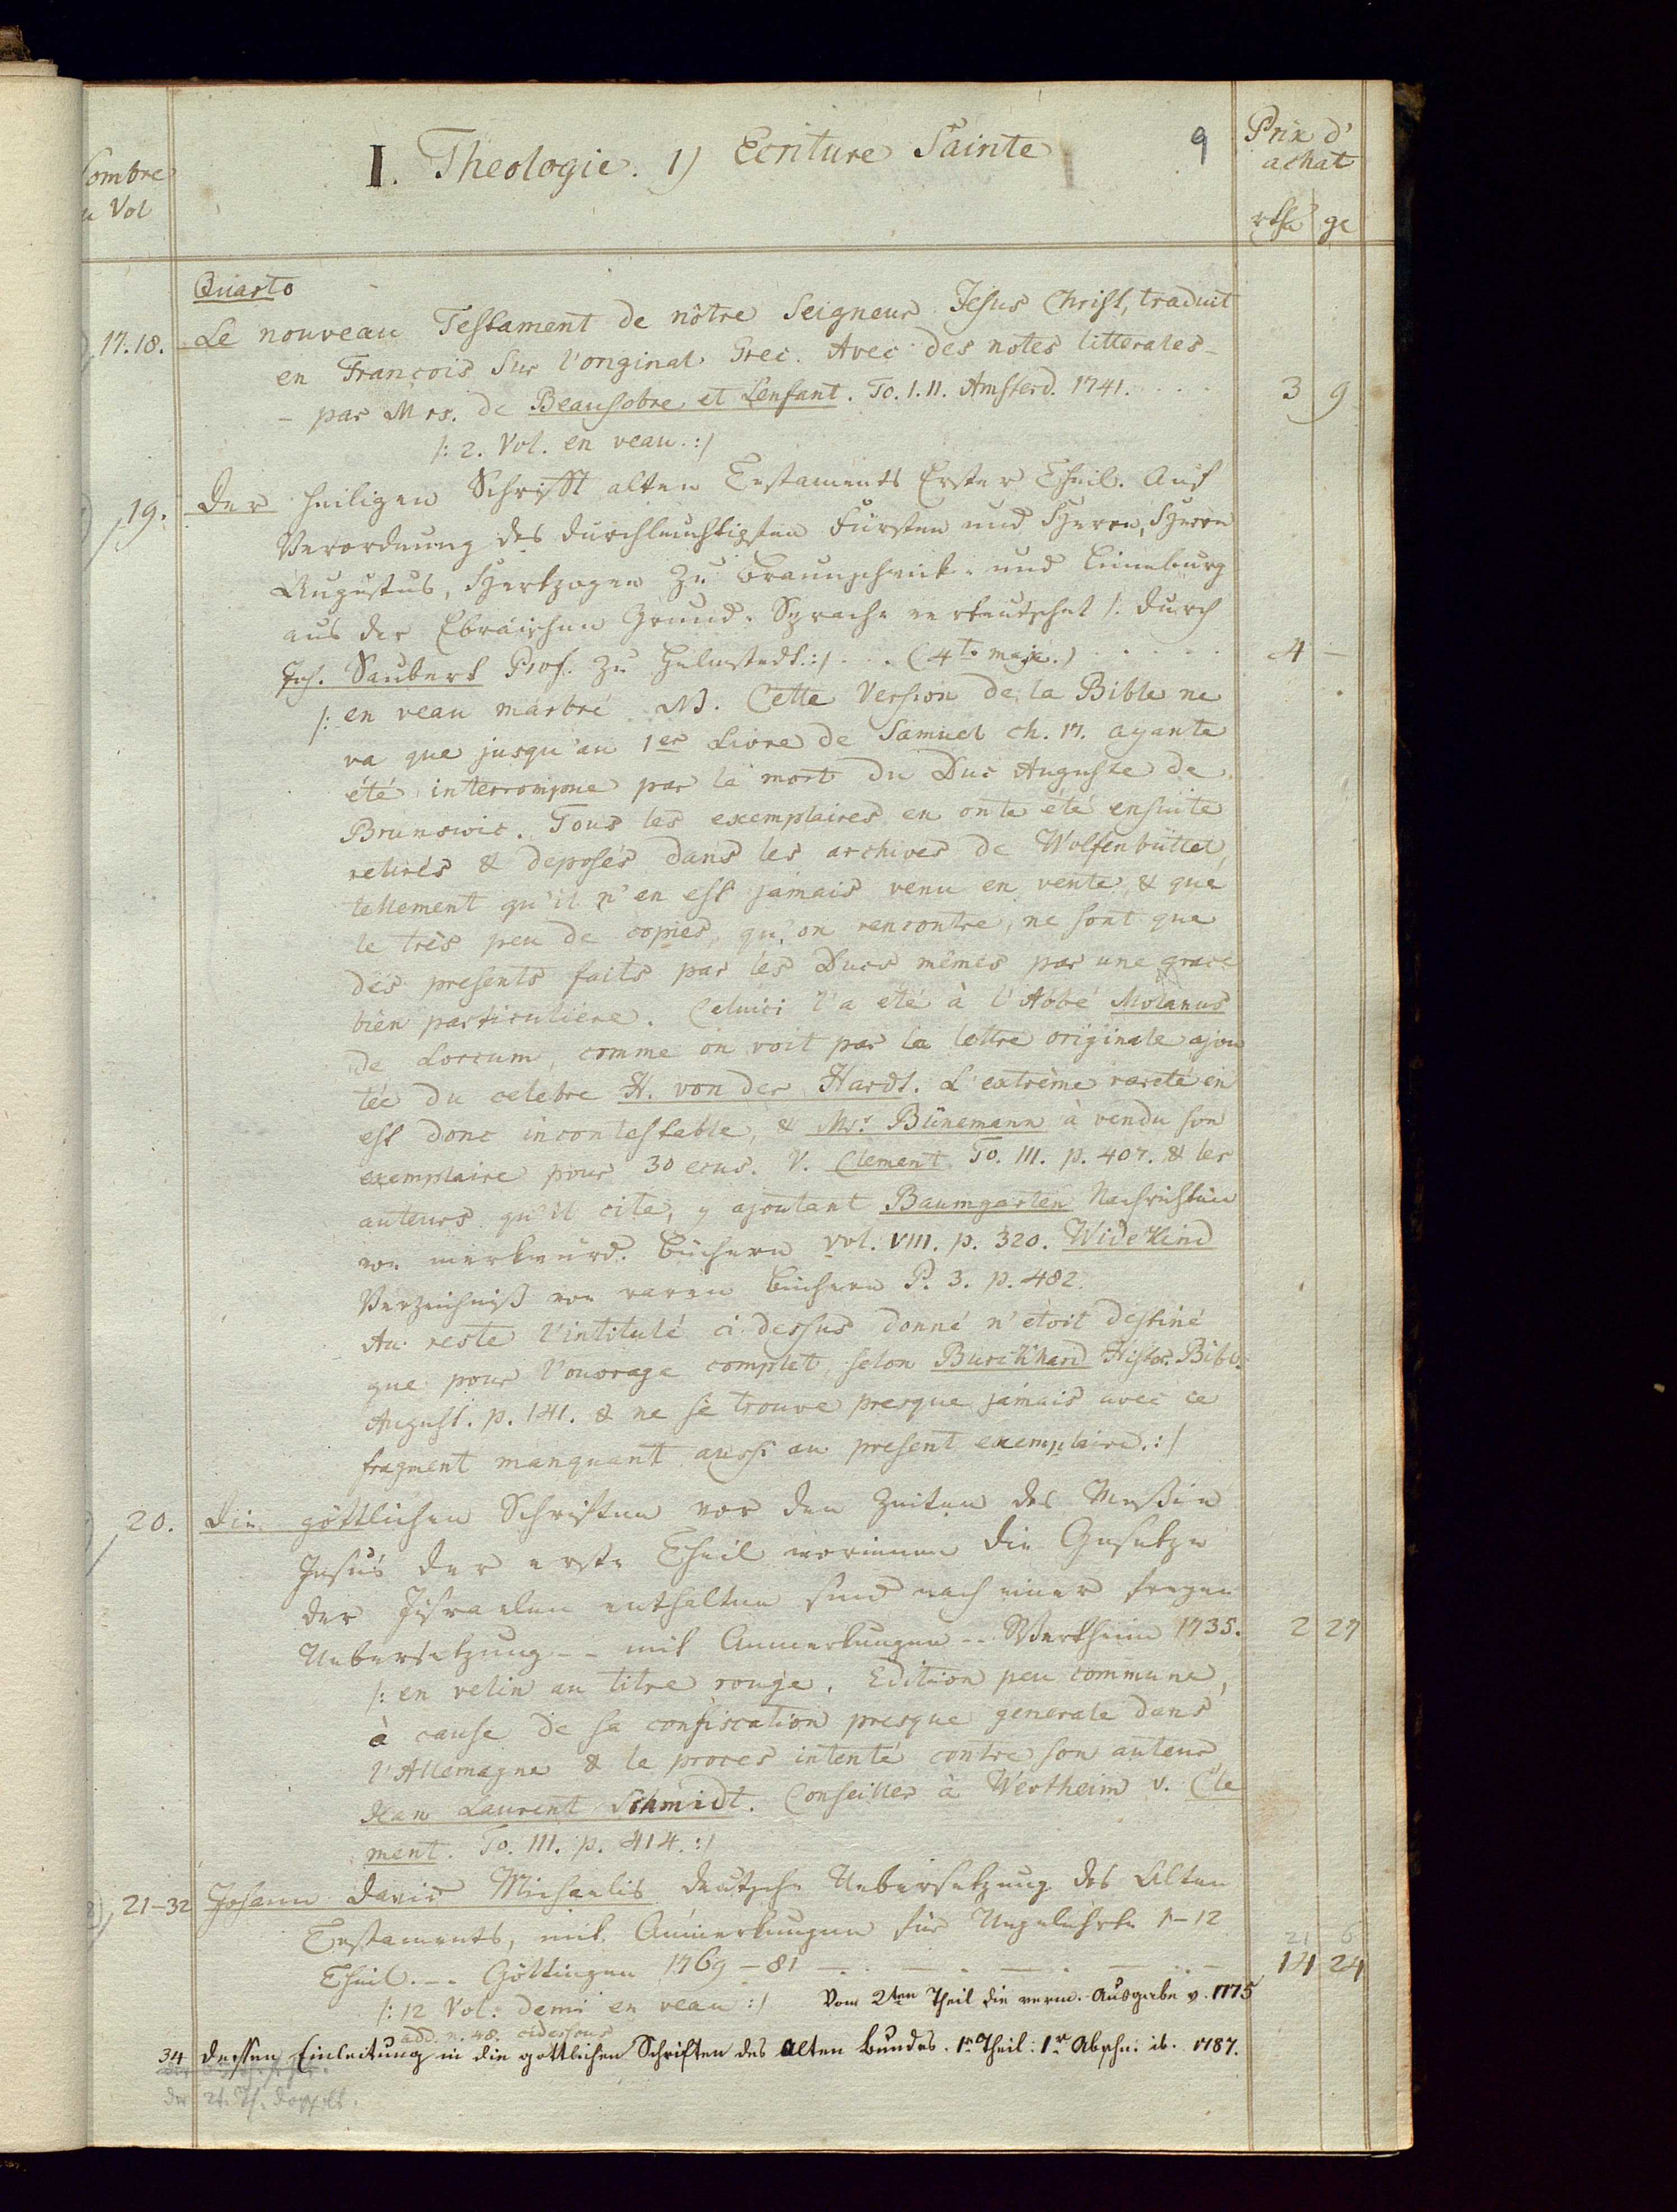 ombre
u Vol
I. Theologie. 1) Ecriture Sainte
9
Prix d'
achat
rthl ge
Quarto
17.18. Le nouveau Testament de nôtre Seigneur Jesus Christ, traduit
en François sur l'original Grec. Avec des notes litterales –
– par Mrs. de Beausobre et Lenfant. To. I. II. Amsterd. 1741. . . . . 3 9
/: 2. Vol. en veau. :/
19. Der heiligen Schrifft alten Testaments Erster Theil. Auf
Verordnung des durchleuchtigsten Fürsten und Herrn, Herrn
Augustus, Hertzogen zu Braunschwick- und Lüneburg
aus der Ebräischen Grund-Sprache verteutschet /: durch
Joh. Saubert Prof. zu Helmstedt. :/ . . . (4to maj.) . . . . . 4 –
/: en veau marbré NB. Cette Version de la Bible ne
va que jusqu'au 1er Livre de Samuel ch. 17. ayante
été interrompue par la mort du Duc Auguste de
Brunswic. Tous les exemplaires en onte été ensuite
retirés & deposés dans les archives de Wolfenbüttel,
tellement qu'il n'en est jamais venu en vente, & que
le très peu de copies, qu'on rencontre, ne sont que
des presents faits par les Ducs mêmes par une grace
bien particuliere. Celuici l'a été à l'Abbé Molanus
de Loccum, comme on voit par la lettre originale ajou
tée du celebre H. von der Hardt. L'extrème rareté en
est donc incontestable, & Mr. Bünemann à vendu son
exemplaire pour 30 ecus. V. Clement To. III. p. 407. & les
auteurs qu'il cite, y ajoutant Baumgarten Nachrichten
von merkwürd. Büchern vol. VIII. p. 320. Widekind
Verzeichniß von raren Büchern P. 3. p. 482.
Au reste l'intitulé ci dessus donné n'étoit destiné
que pour l'ouvrage complet, selon Burckhard Histor. Bibl.
August. p. 141. & ne se trouve presque jamais avec ce
fragment manquant aussi au present exemplaire. :/
20. Die göttlichen Schriften vor den Zeiten des Messie
Jesus der erste Theil worinnen die Gesetze
der Jisraelen enthalten sind nach einer freyen
Uebersetzung - - mit Anmerkungen - - Wertheim 1735. 2 27
/: en velin au titre rouge. Edition peu commune,
à cause de sa confiscation presque generale dans
l'Allemagne & le proces intenté contre son auteur
Jean Laurent Schmidt. Conseiller à Wertheim v. Cle
ment. To. III. p. 414. :/
21–32 Johann David Michaelis deutsche Uebersetzung des Alten
Testaments, mit Anmerkungen für Ungelehrte 1–12
21 6
Theil. – . Göttingen 1769–81 – . – . – . – . – 14 24
/: 12 Vol. demi en veau :/ Vom 2ten Theil die verm. Ausgabe v. 1775
add. n. 48. cidessous
34 dessen Einleitung in die gottlichen Schriften des alten Bundes. 1r Theil: 1r Abschn: ib. 1787.
der 2t. Th. doppelt.